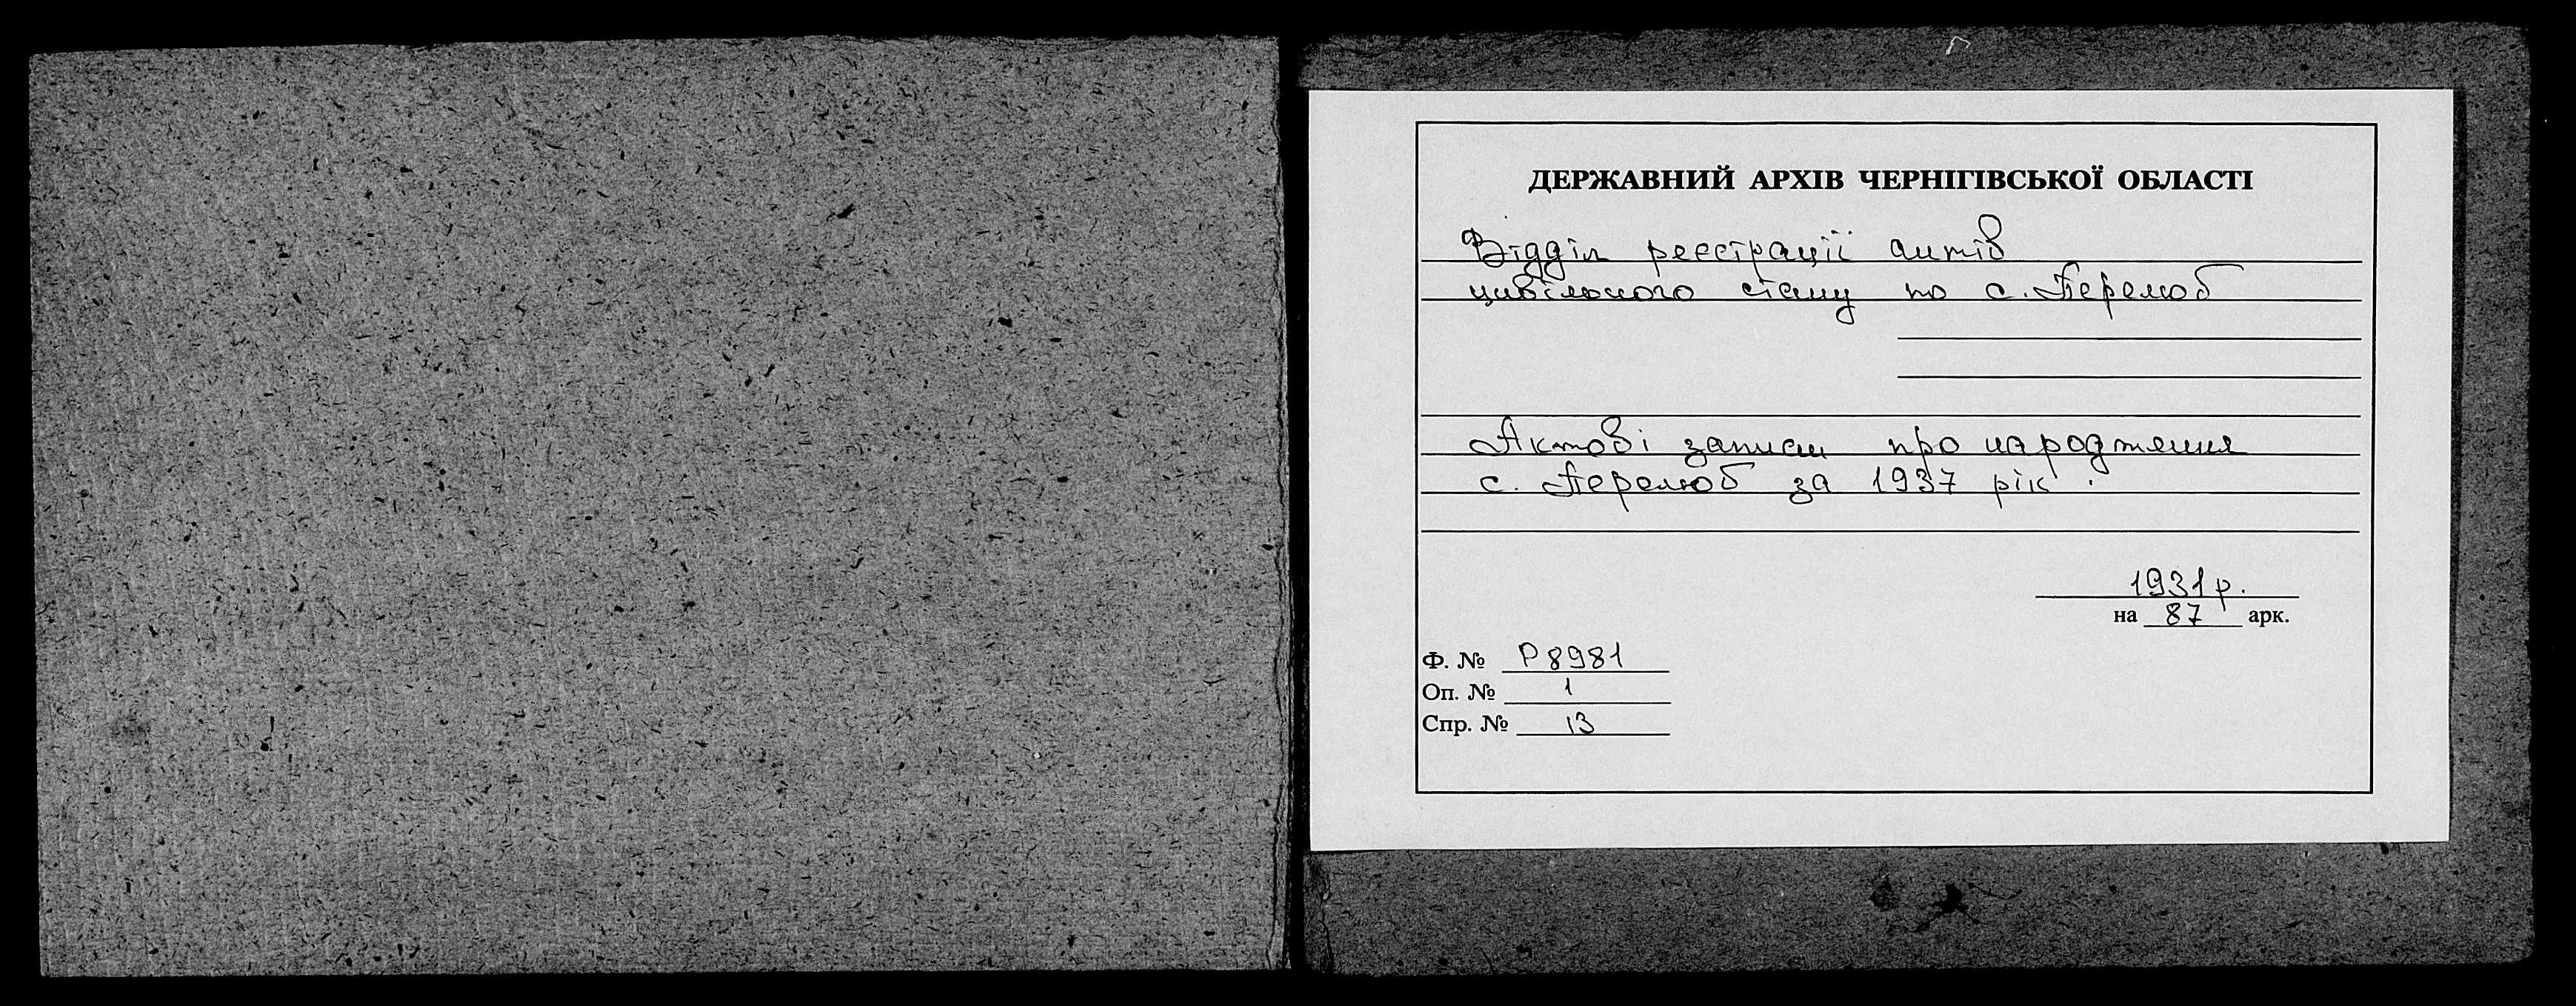 ДЕРЖАВНИЙ АРХІВ ЧЕРНІГІВСЬКОЇ ОБЛАСТІ
Відділ реєстрації актів
цивільного стану по с. Перелюб
Актові записи про народження
с. Перелюб за 1937 рік.
1931 р.
на 87 арк.
Ф. № Р8981
Оп. № 1
Спр. № 13